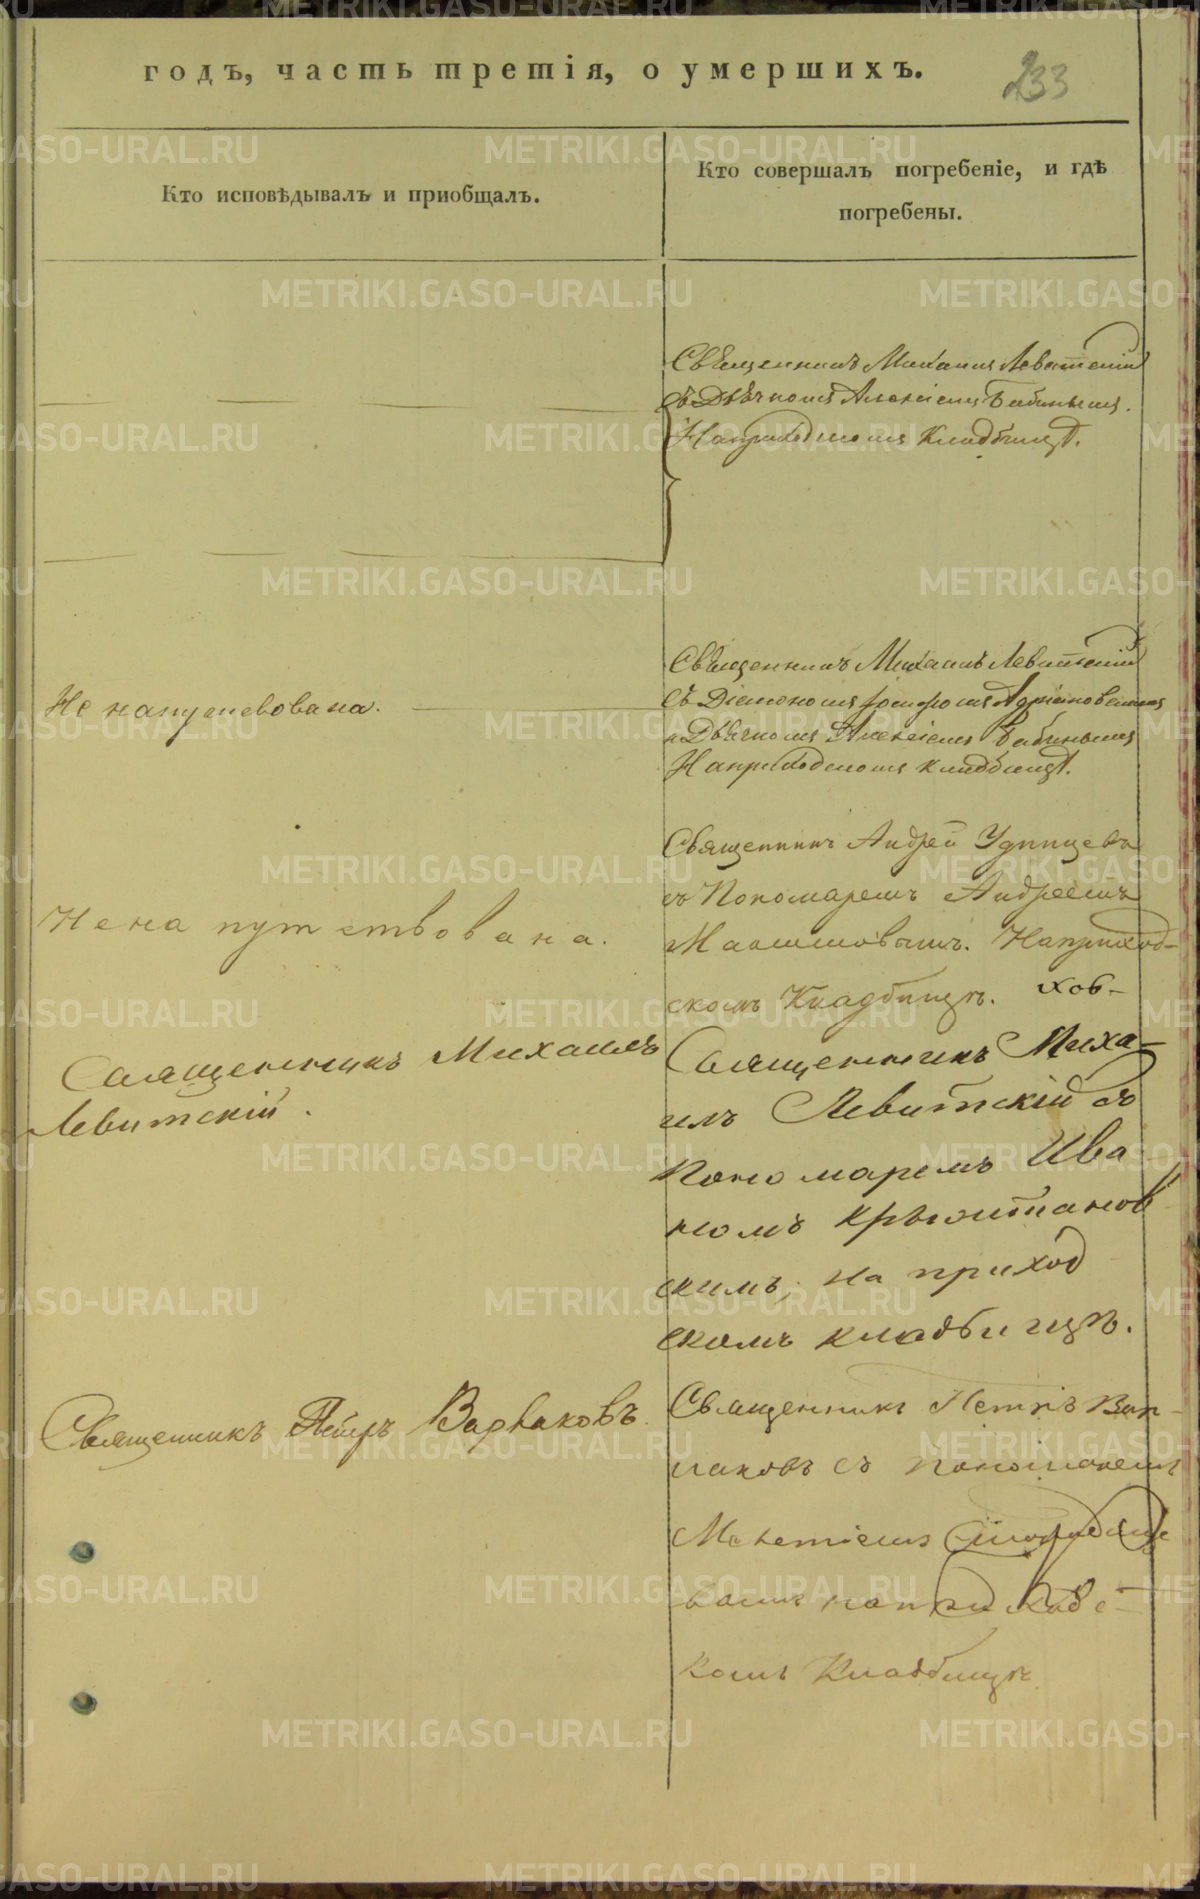 годъ, часть третія, о умершихъ.
233
Кто исповѣдывалъ и приобщалъ.
Кто совершалъ погребеніе, и гдѣ
погребены.
Священникъ Михаилъ Левитскій
съ Дьячкомъ Алексіемъ Бабинымъ.
На приходскомъ кладбищѣ.
Не напутствована.
Священникъ Михаилъ Левитскій
съ Діакономъ Адріановскимъ
и Дьячкомъ Алексіемъ Бабинымъ
На приходскомъ кладбищѣ.
Не на путствована.
Священникъ Андрей Удинцевъ
съ Пономаремъ Андреемъ
На приход-
скомъ Кладбищѣ.
Священникъ Михаилъ
Левитскій.
Священникъ Миха-
илъ Левитскій съ
пономаремъ Ива
номъ Крыжтанов
скимъ, на приход
скомъ кладбищѣ.
Священникъ Петръ Варваковъ.
Священникъ Петръ Вар-
ваковъ съ пономаремъ
на приходс-
комъ Кладбищѣ
METRIKI.GASO-URAL.RU